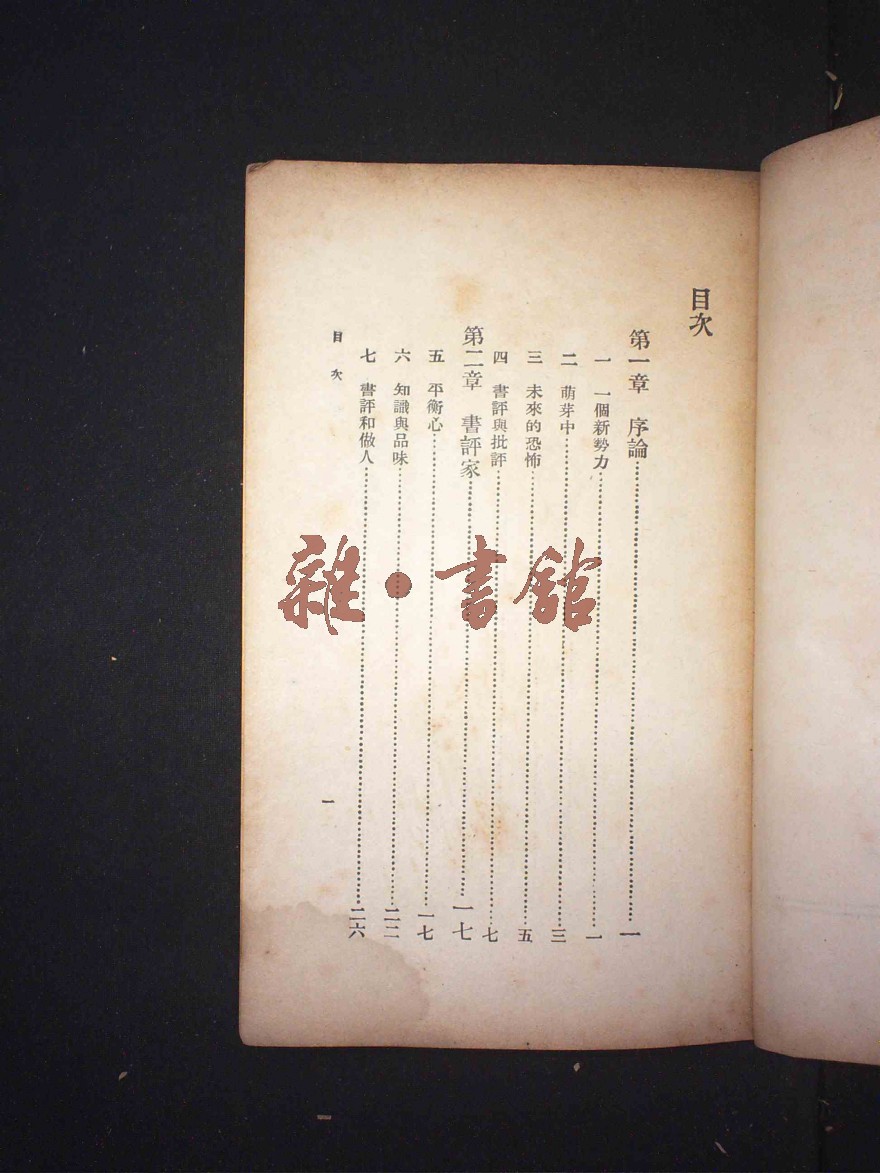 目次
第一章 序論……一
一 一個新勢力……一
二 萌芽中……三
三 未來的恐怖……五
四 書評與批評……七
第二章 書評家……一七
五 平衡心……一七
六 知識與品味……二二
七 書評和做人……二六
目次 一
雜·書館